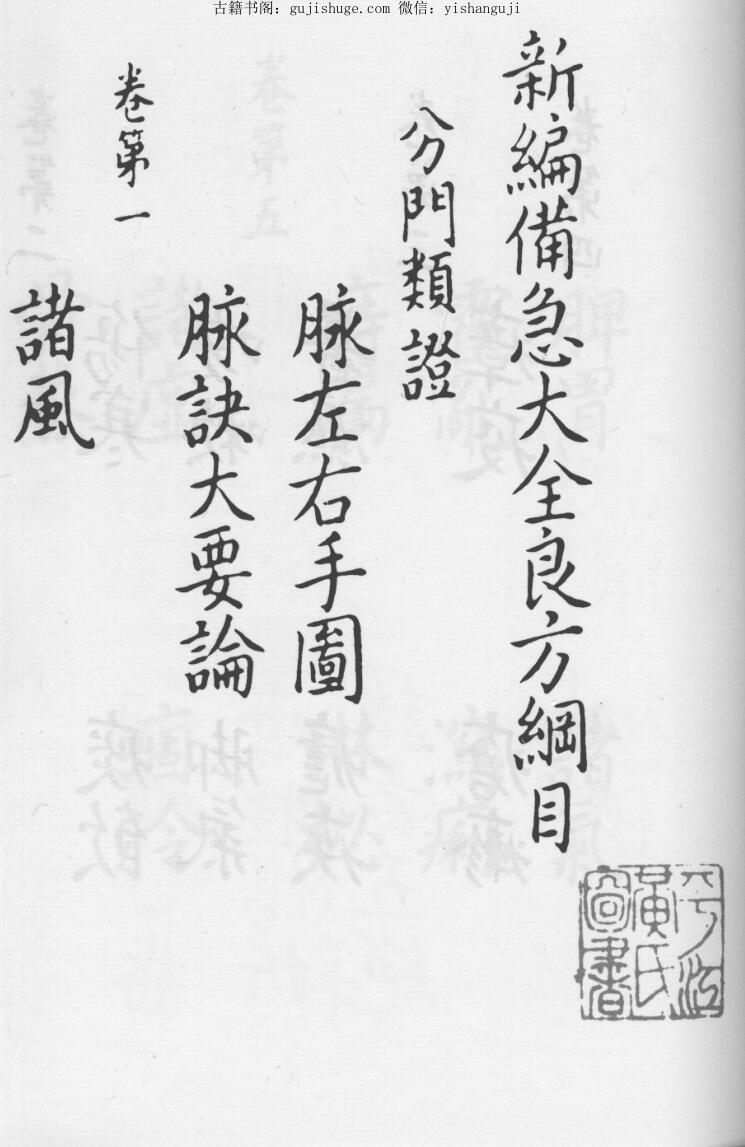 古籍书阁：gujishuge.com 微信：yishanguji
新編備急大全良方綱目
分門類證
脉左右手圖
脉訣大要論
卷第一
諸風
平江
黃氏
圖書